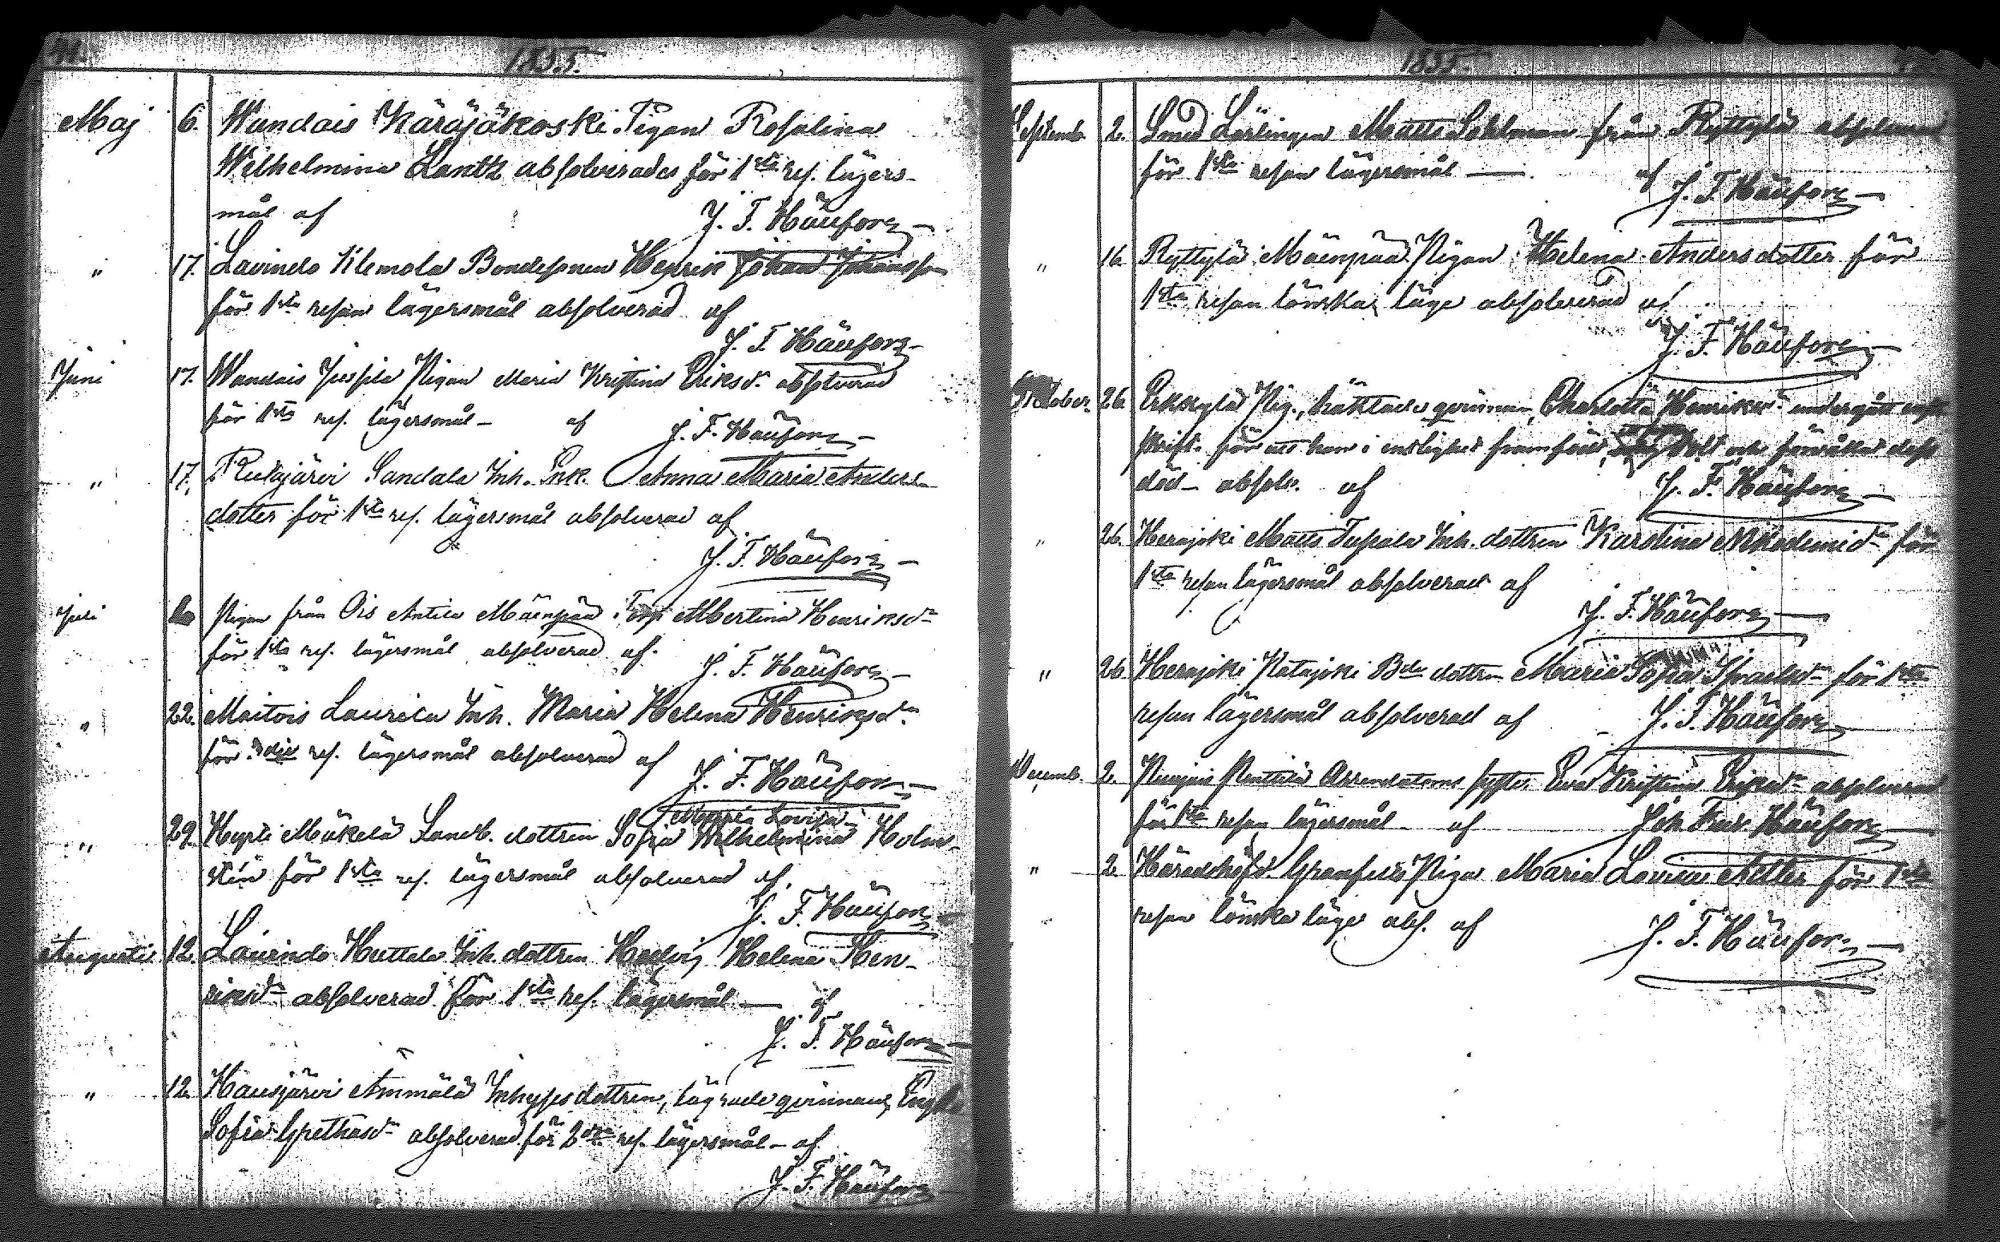 41.
1855.
Maj 6. Wandais Käräjäkoski Pigan Rosalina
Wilhelmina Lantz absolverades för 1sta res. lägers-
mål af J. F. Häufors
" 17. Lavindo Klemola Bondesonen Henrik Johan Johansson
för 1sta resan lägersmål absolverad af
J. F. Häufors
Juni 17. Wandais Jussila Pigan Maria Kristina Eriksdr absolverad
för 1sta res. lägersmål – af J. F. Häufors
" 17. Ruhajärvi Sandala Inh. Enk. Anna Maria Anders
dotter för 1sta res. lägersmål absolverad af
J. F. Häufors
Juli Pigan från Ois Antila Mäenpää Torp Albertina Henriksdr
för 1sta res. lägersmål absolverad af.
J. F. Häufors
" 22. Maitois Laurila Inh. Maria Helena Henriksdr
för res. lägersmål absolverad af
J. F. Häufors
Maria Lovisa
" 29. Hyrli Mäkelä dottren Sofia Wilhelmina Holm-
stén för 1sta res. lägersmål absolverad af.
J. F. Häufors
Augusti 12. Lavindo Huttala Inh. dottren Hedvig Helena Hen-
riksdr absolverad för 1sta res. lägersmål — af
J. F. Häufors
" 12. Hausjärvi Ammälä Inhyses dottren, lägrade qvinnan, Engla
Sofia Grethasdr absolverad för 2dra res. lägersmål – af
J. F. Häufors
1855.
Septemb. 2. Smed Lärlingen Matts Sohlman från Ryttylä absolverad
för 1sta resan lägersmål — af
J. F. Häufors
" 16. Ryttylä Mäenpää Pigan Helena Andersdotter för
1sta resan lönska läge absolverad af
J. F. Häufors
October. 26. Erkkylä Pig., häktade qvinnan, Charlotta Henriksdr undergått
skrift. för att hon i enslighet framfödt och dess
död – absolv. af J. F. Häufors
" 26. Herajoki Matts Tupala Inh. dottren Karolina Nikodemidr för
1sta resan lägersmål absolverad af
J. F. Häufors
" 26. Herajoki Ratajoki Bde dottren Maria Sofia Israelsdr för 1sta
resan lägersmål absolverad af J. F. Häufors
Decemb. 2. Penttilä Arrendatorns syster Eva Kristina Eriksdr absolverad
för 1sta resan lägersmål – af Joh. Fredr. Häufors
" 2. Häradshöfd. Granfelts Piga Maria Lovisa för 1sta
resan lönska läge abs. af
J. F. Häufors